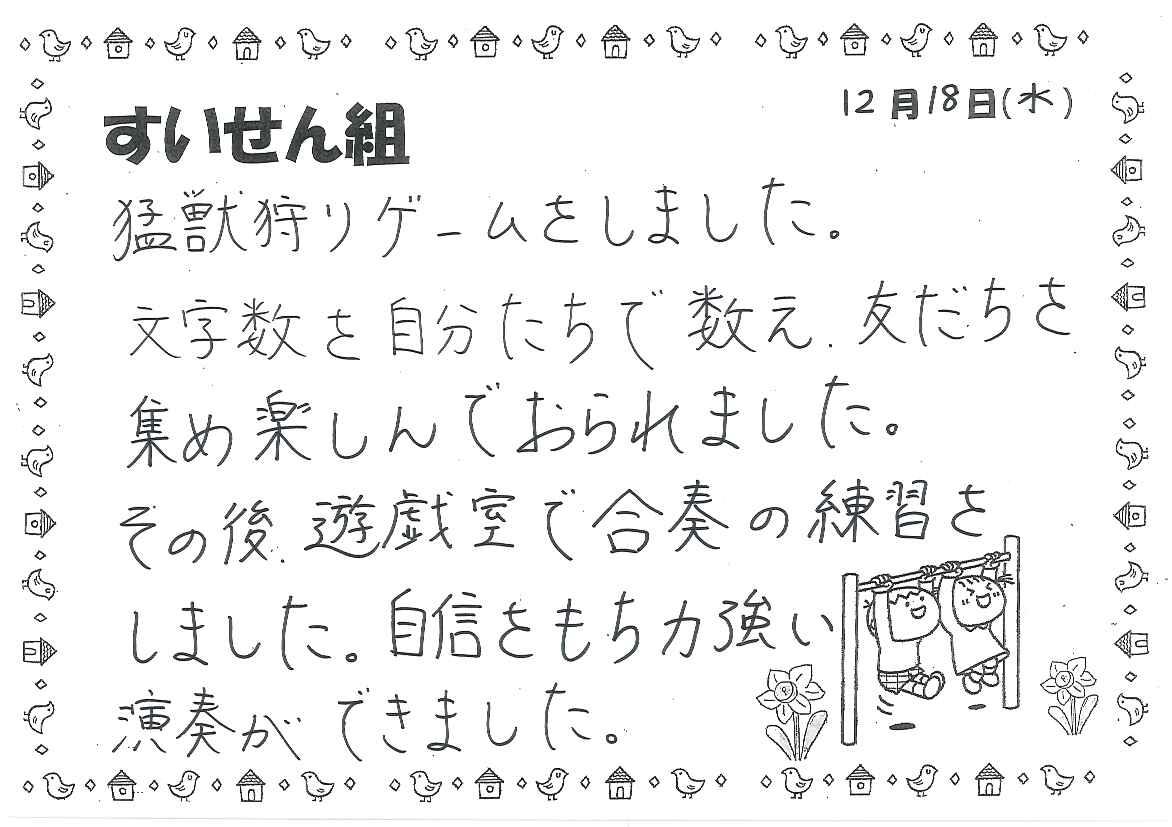 すいせん組
12月18日(水)
猛獣狩りゲームをしました。
文字数を自分たちで数え、友だちを
集め楽しんでおられました。
その後、遊戯室で合奏の練習を
しました。自信をもち力強い
演奏ができました。